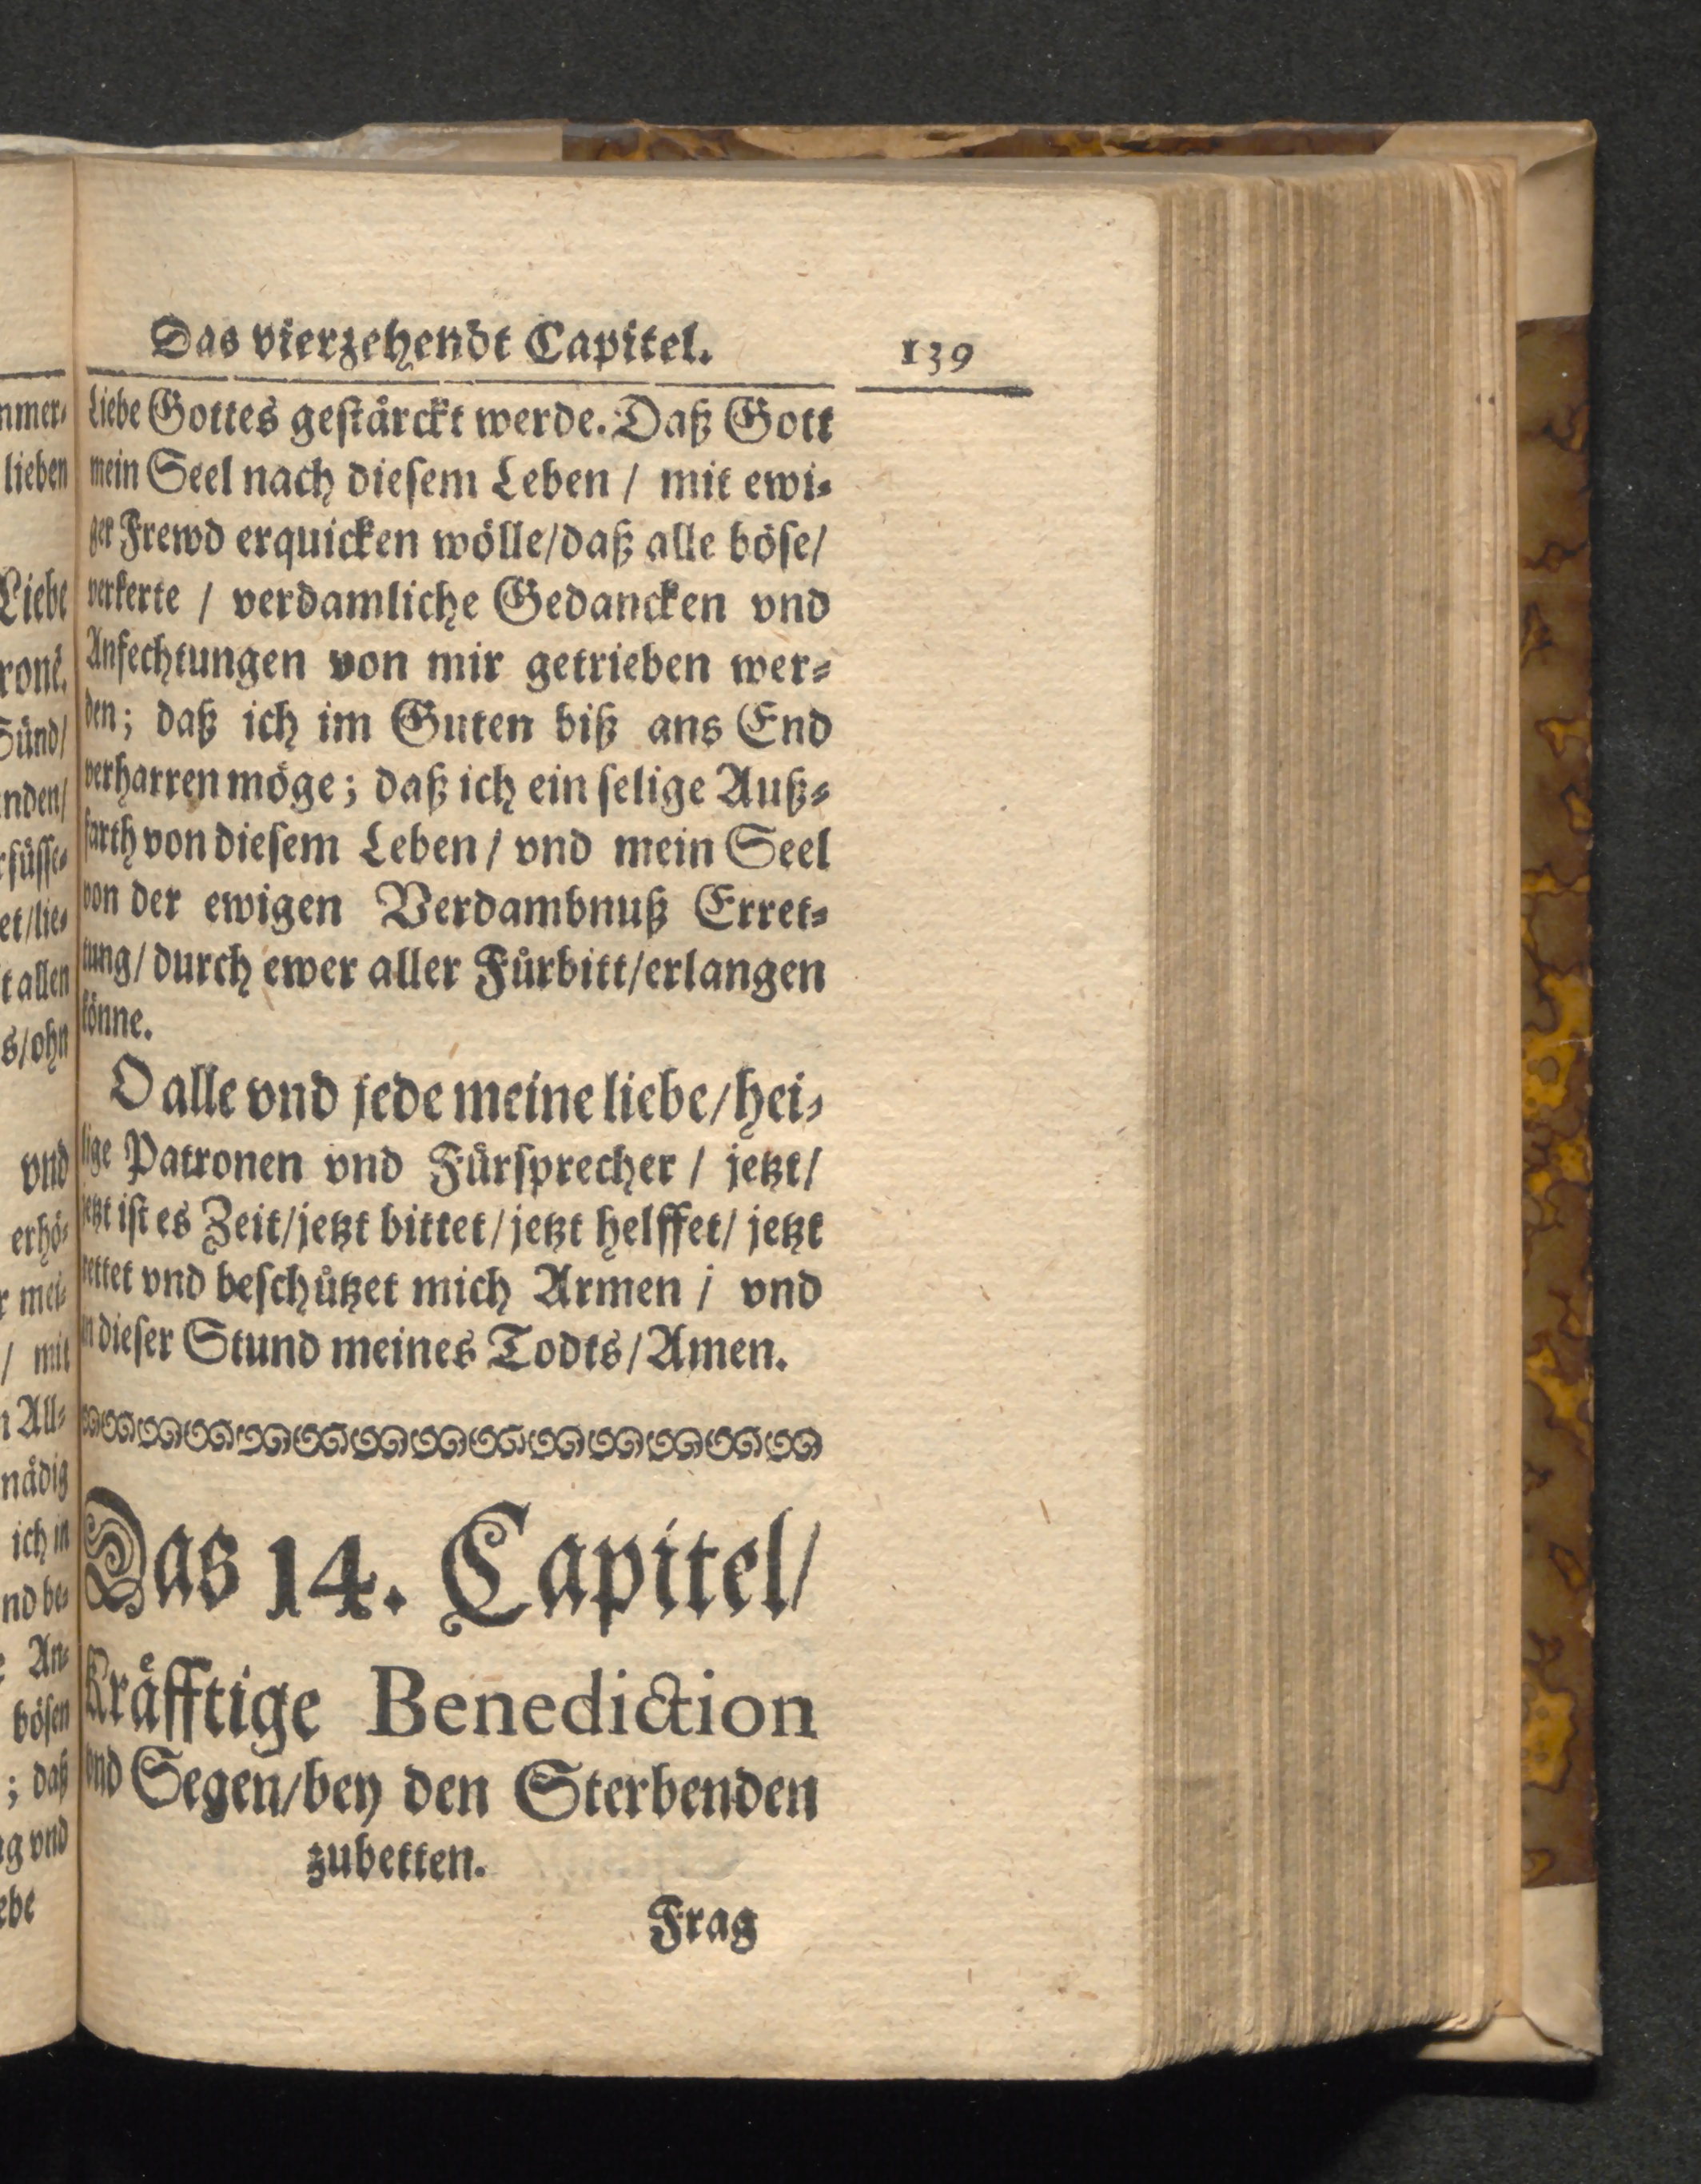 Das vierzehendt Capitel. 139
liebe Gottes gestärckt werde. Daß Gott
mein Seel nach diesem Leben / mit ewi-
ger Frewd erquicken wölle/daß alle böse/
verkerte / verdamliche Gedancken vnd
Anfechtungen von mir getrieben wer-
den; daß ich im Guten biß ans End
verharren möge; daß ich ein selige Auß-
farth von diesem Leben / vnd mein Seel
von der ewigen Verdambnuß Erret-
tung/durch ewer aller Fürbitt/erlangen
könne.
O alle vnd jede meine liebe/hei-
lige Patronen vnd Fürsprecher / jetzt/
jetzt ist es Zeit/jetzt bittet/jetzt helffet/ jetzt
rettet vnd beschützet mich Armen / vnd
in dieser Stund meines Todts/Amen.
Das 14. Capitel/
Kräfftige Benediction
vnd Segen/bey den Sterbenden
zubetten.
Frag